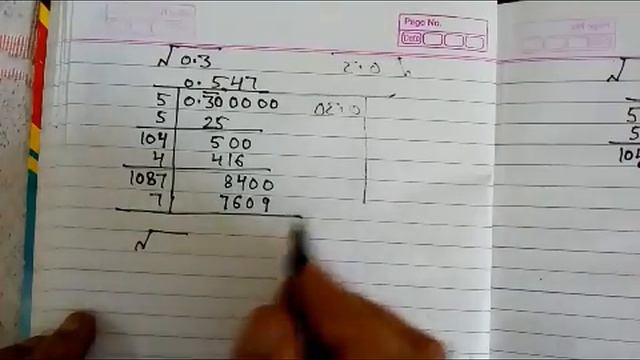 Page No.
Date
√0.3
0.547
5 0.300000
5 25
104 500
4 416
1087 8400
7 7609
√
√
5
5
104